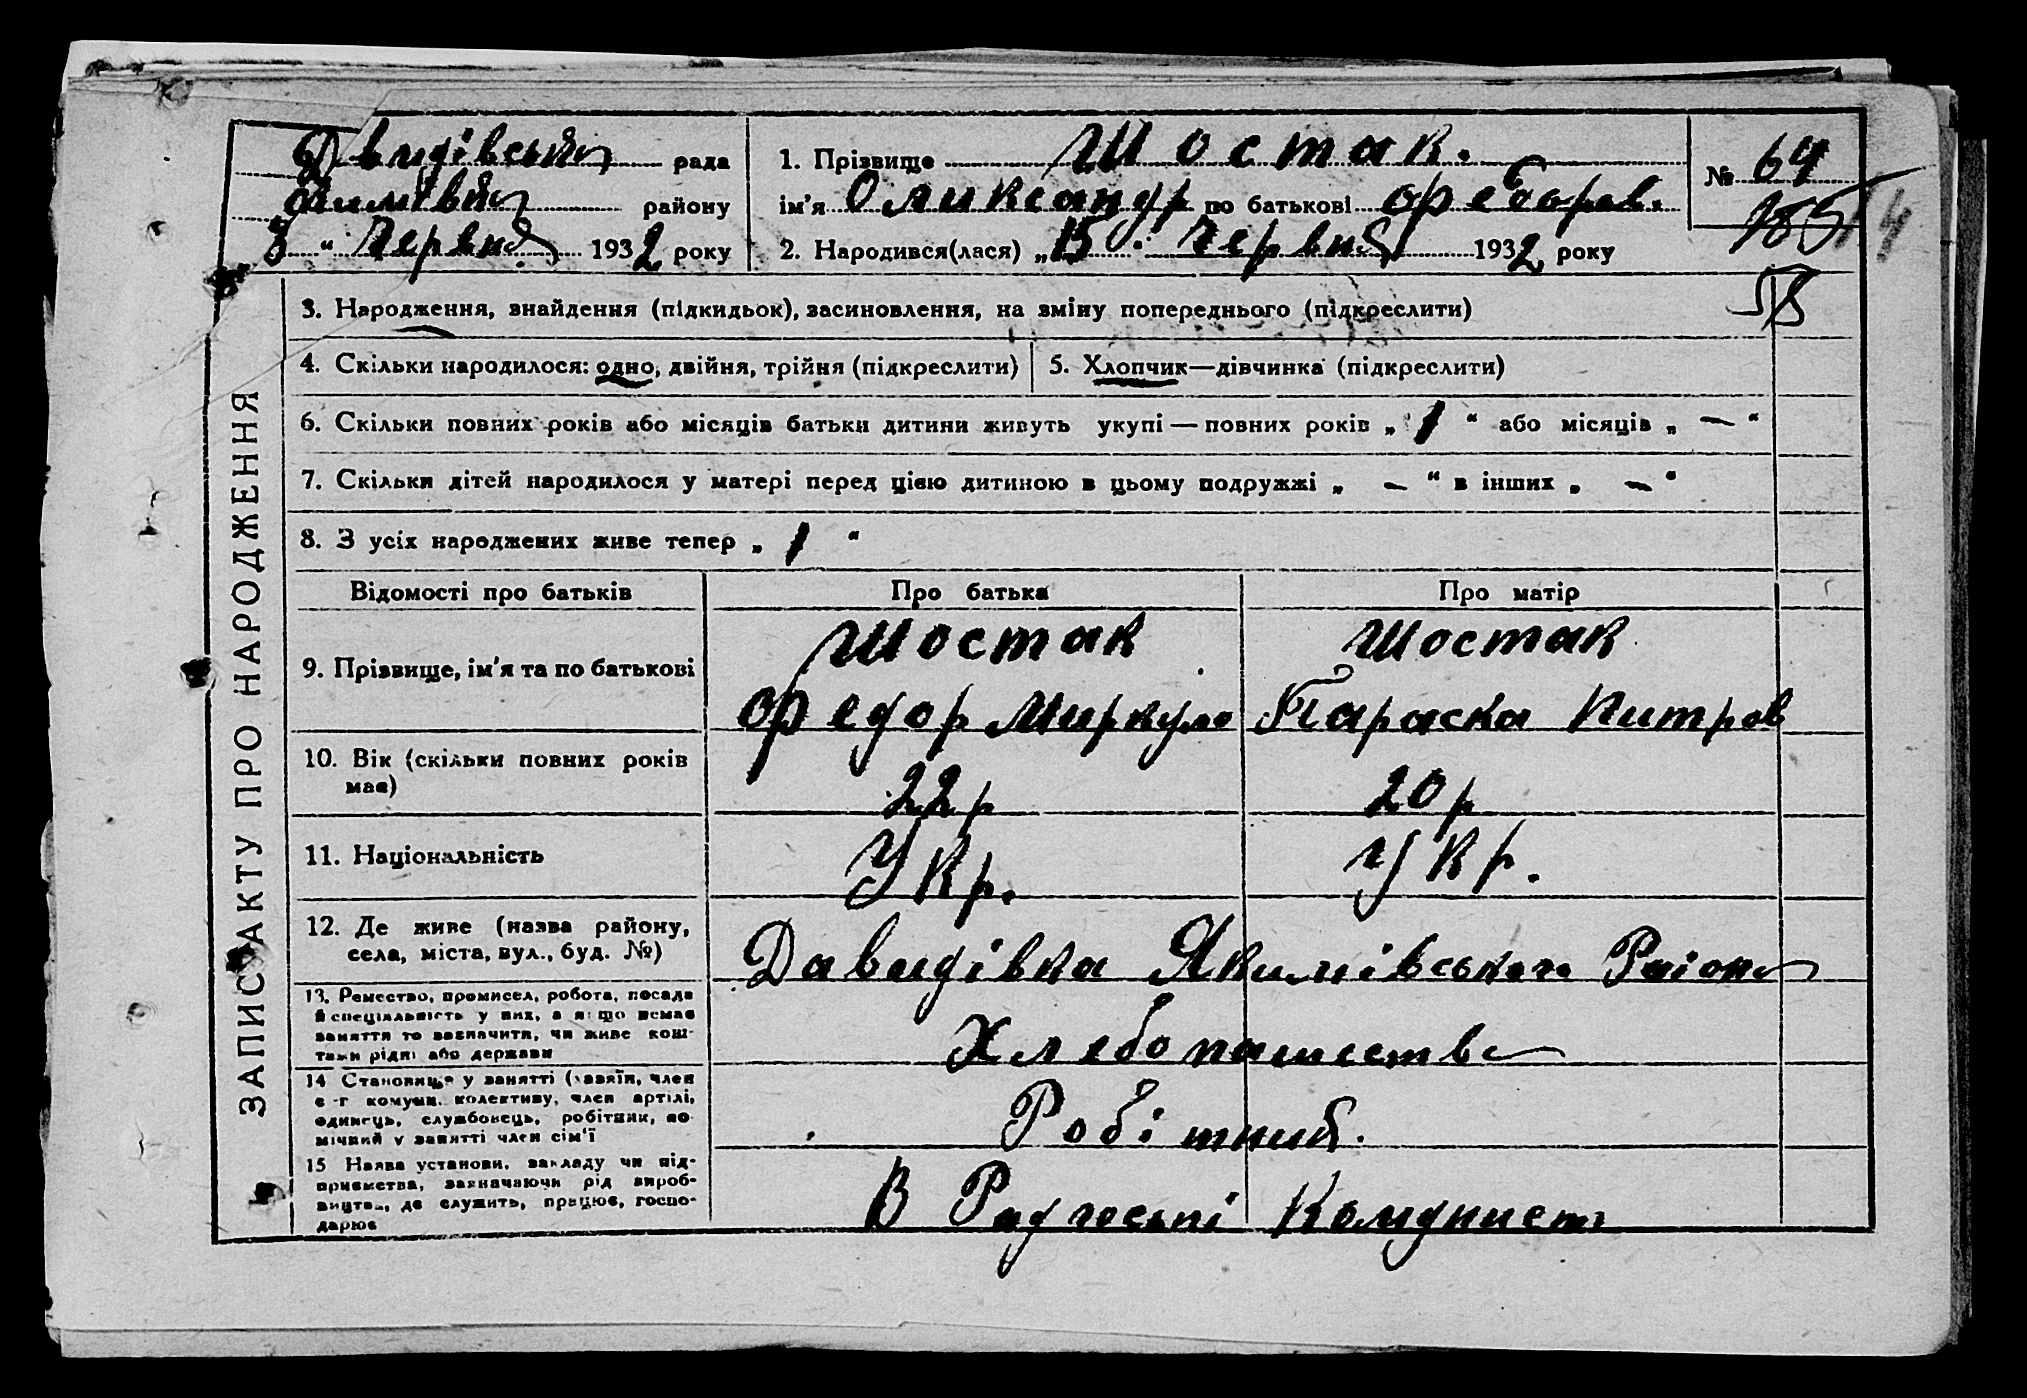 Давидівська рада
Якимівськ району
8 " Червня 1932 року
1. Прізвище Шостак.
ім'я Олександр по батькові Федоров.
2. Народився(лася) „15" Червня 1932 року
№ 64
3. Народження, знайдення (підкидьок), засиновлення, на зміну попереднього (підкреслити)
4. Скільки народилося: одно, двійня, трійня (підкреслити)
5. Хлопчик—дівчинка (підкреслити)
6. Скільки повних років або місяців батьки дитини живуть укупі — повних років „ 1 " або місяців „ — "
7. Скільки дітей народилося у матері перед цією дитиною в цьому подружжі „ — " в інших „ — "
8. З усіх народжених живе тепер „ 1 "
ЗАПИС АКТУ ПРО НАРОДЖЕННЯ
Відомості про батьків
Про батька
Про матір
9. Прізвище, ім'я та по батькові
Шостак
Федор Меркуло
Шостак
Параска Питров
10. Вік (скільки повних років
має)
22 р
20 р
11. Національність
Укр.
Укр.
12. Де живе (назва району,
села, міста, вул., буд. №)
Давидівка Якимівського Району
13. Ремество, промисел, робота, посада
й спеціальність у них, а якщо немає
заняття то зазначити, чи живе кош-
тами рідні або держави
Хлебопашество
14 Становище у занятті (хазяїн, член
с-г комуни, колективу, член артілі,
одинець, службовець, робітник, по-
мічний у занятті член сім'ї
Робітниб.
15 Назва установи, закладу чи під-
приємства, зазначаючи рід вироб-
ництва, де служить, працює, госпо-
дарює
В Радгоспі Комунист